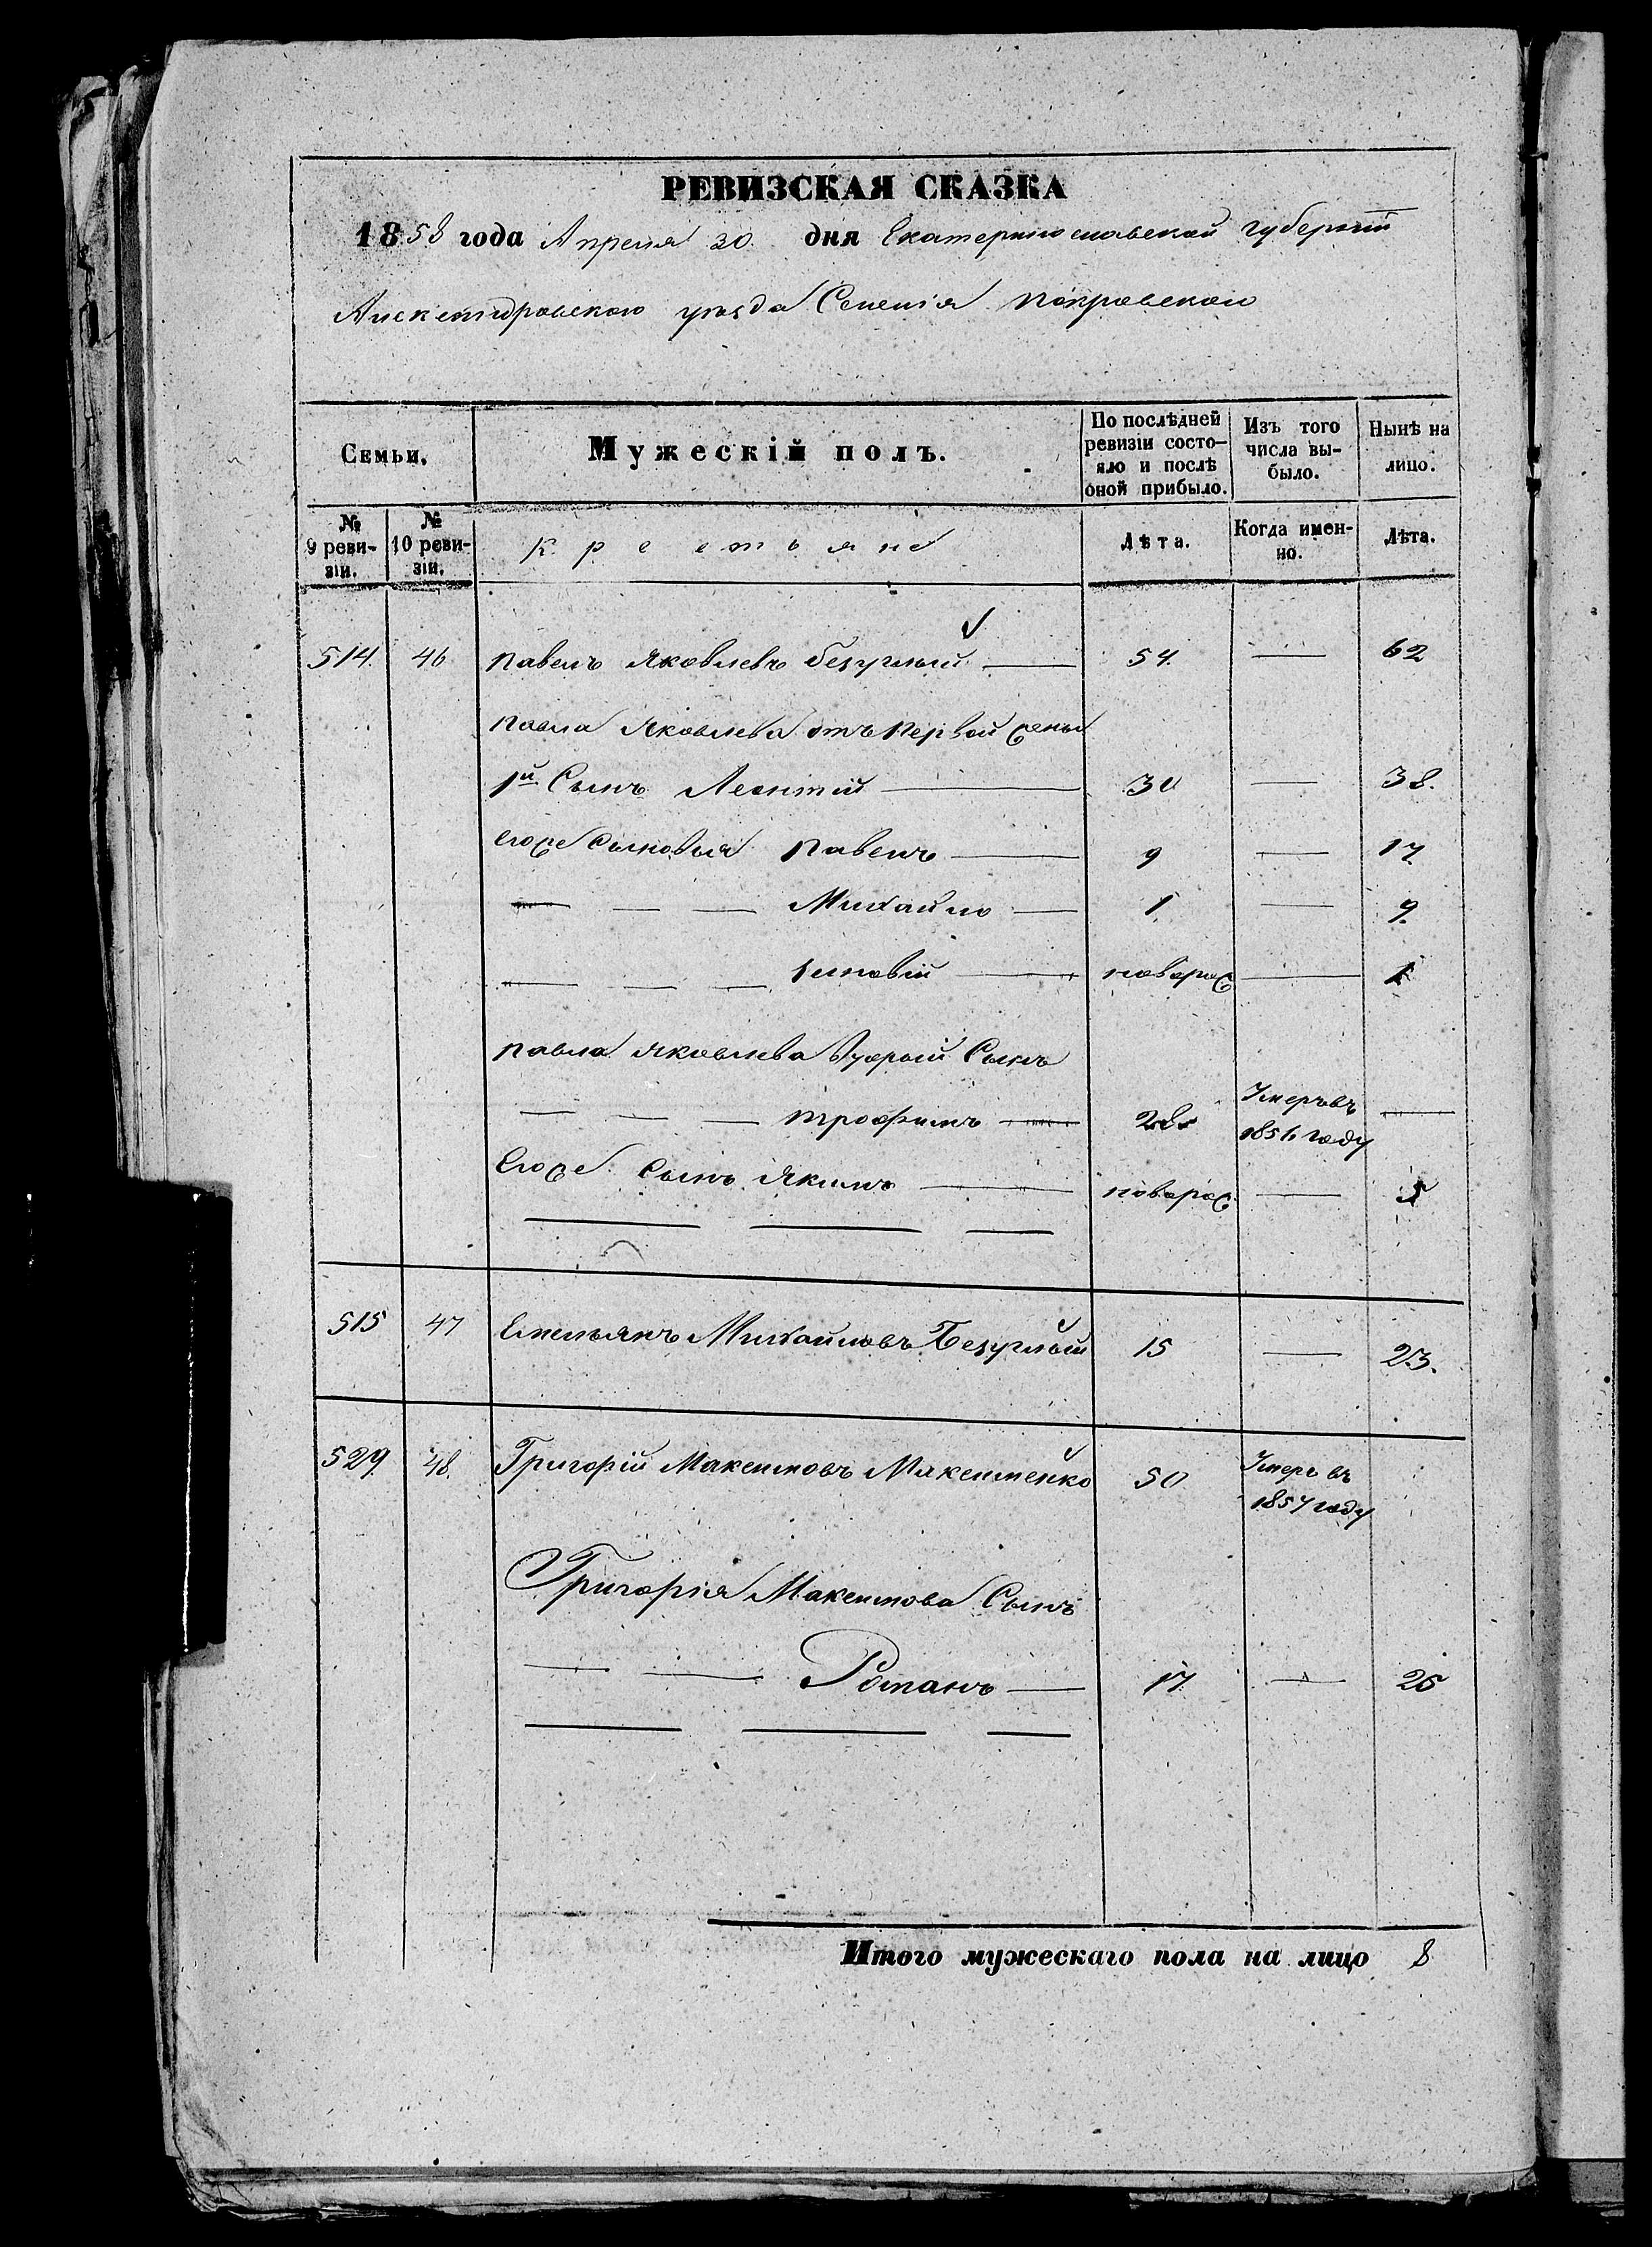 РЕВИЗСКАЯ СКАЗКА
1858 года Апреля 30 дня Екатеринославской губерніи
Александровского уезда Селенія Покровского
Семьи.
Мужескій полъ.
По послѣдней ревизіи состо-
яло и послѣ оной прибыло.
Изъ того числа вы-
было.
Нынѣ на лицо.
№ 9 реви-
зіи.
№ 10 реви-
зіи.
Крестьяне
Лѣта.
Когда имен-
но.
Лѣта.
514. 46 Павелъ Яковлевъ Безуглый — 54. — 62
Павла Яковлева отъ первой жены
1й Сынъ Леонтій — 30 — 38.
Егоже Сыновья Павелъ — 9 — 17
— — — Михайло — 1 — 9.
— — — — новорож — 1
Павла Яковлева Второй Сынъ
— — — Трофимъ — 28 Умеръ въ 1856 году —
Егоже Сынъ Якимъ — новорож — 5
515 47 Емельянъ Михайловъ Безуглый 15 — 23.
529. 48. Григорій Максимовъ Максименко 50 Умеръ въ 1857 году
Григорія Максимова Сынъ
— — Романъ — 17 — 25
Итого мужескаго пола на лицо 8